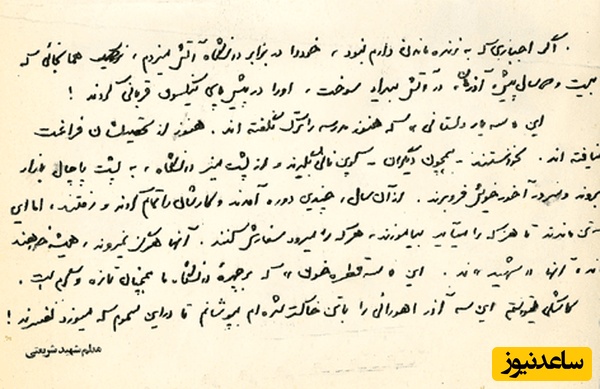 . اگر اجباری که به زنده ماندن دارم نبود، خود را در برابر دانشگاه آتش میزدم، همانجائی که
بیست و سال پیش، آذرمان، در آتش بیداد سوخت، او را در پیش پای نیکسون قربانی کردند!
این سه یار دبستانی، که هنوز مدرسه را ترک نگفته اند. هنوز از تحصیلشان فراغت
نیافته اند. نخواستند - همچون دیگران - کوپن نانی بگیرند و از پشت میز دانشگاه، به پشت پاچال بازار
بروند و سر در آخور خویش فرو برند. از آن سال، چندین دوره آمدند و کارشان را تمام کردند و رفتند، اما این
سه تن ماندند تا هر که را می‌آید بیاموزند، هر که را میرود سفارش کنند. آنها هرگز نمیروند، همیشه خواهند
ماند، آنها «شهید»ند. این «سه قطره خون» که بر چهره دانشگاه ما همچنان تازه و گرم است.
کاشکی میتوانستم این سه آذر اهورائی را با تن خاکستر شده ام بپوشانم تا در این سموم که میوزد نفسرند!
معلم شهید شریعتی
ساعدنیوز